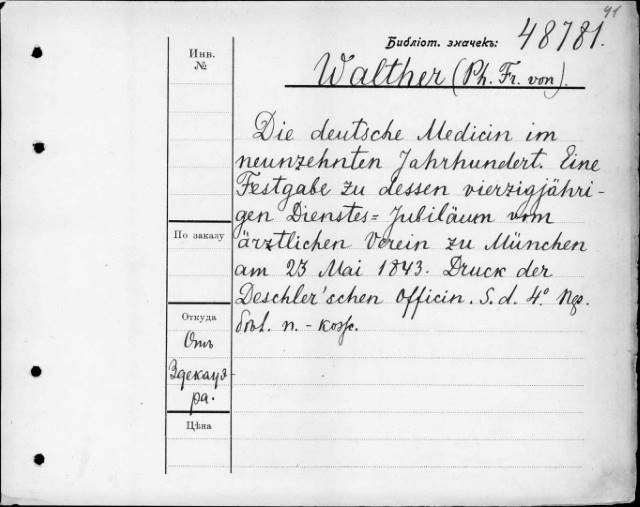 41
Библіот. значекъ: 48781.
Инв.
№
Walther (Ph. Fr. von).
Die deutsche Medicin im
neunzehnten Jahrhundert. Eine
Festgabe zu dessen vierzigjähri-
gen Dienstes=Jubiläum vom
ärztlichen Verein zu München
am 23 Mai 1843. Druck der
Deschler'schen Officin. S. d. 4°
п.-кож.
По заказу
Откуда
Отъ
Здекауэ-
ра.
Цѣна